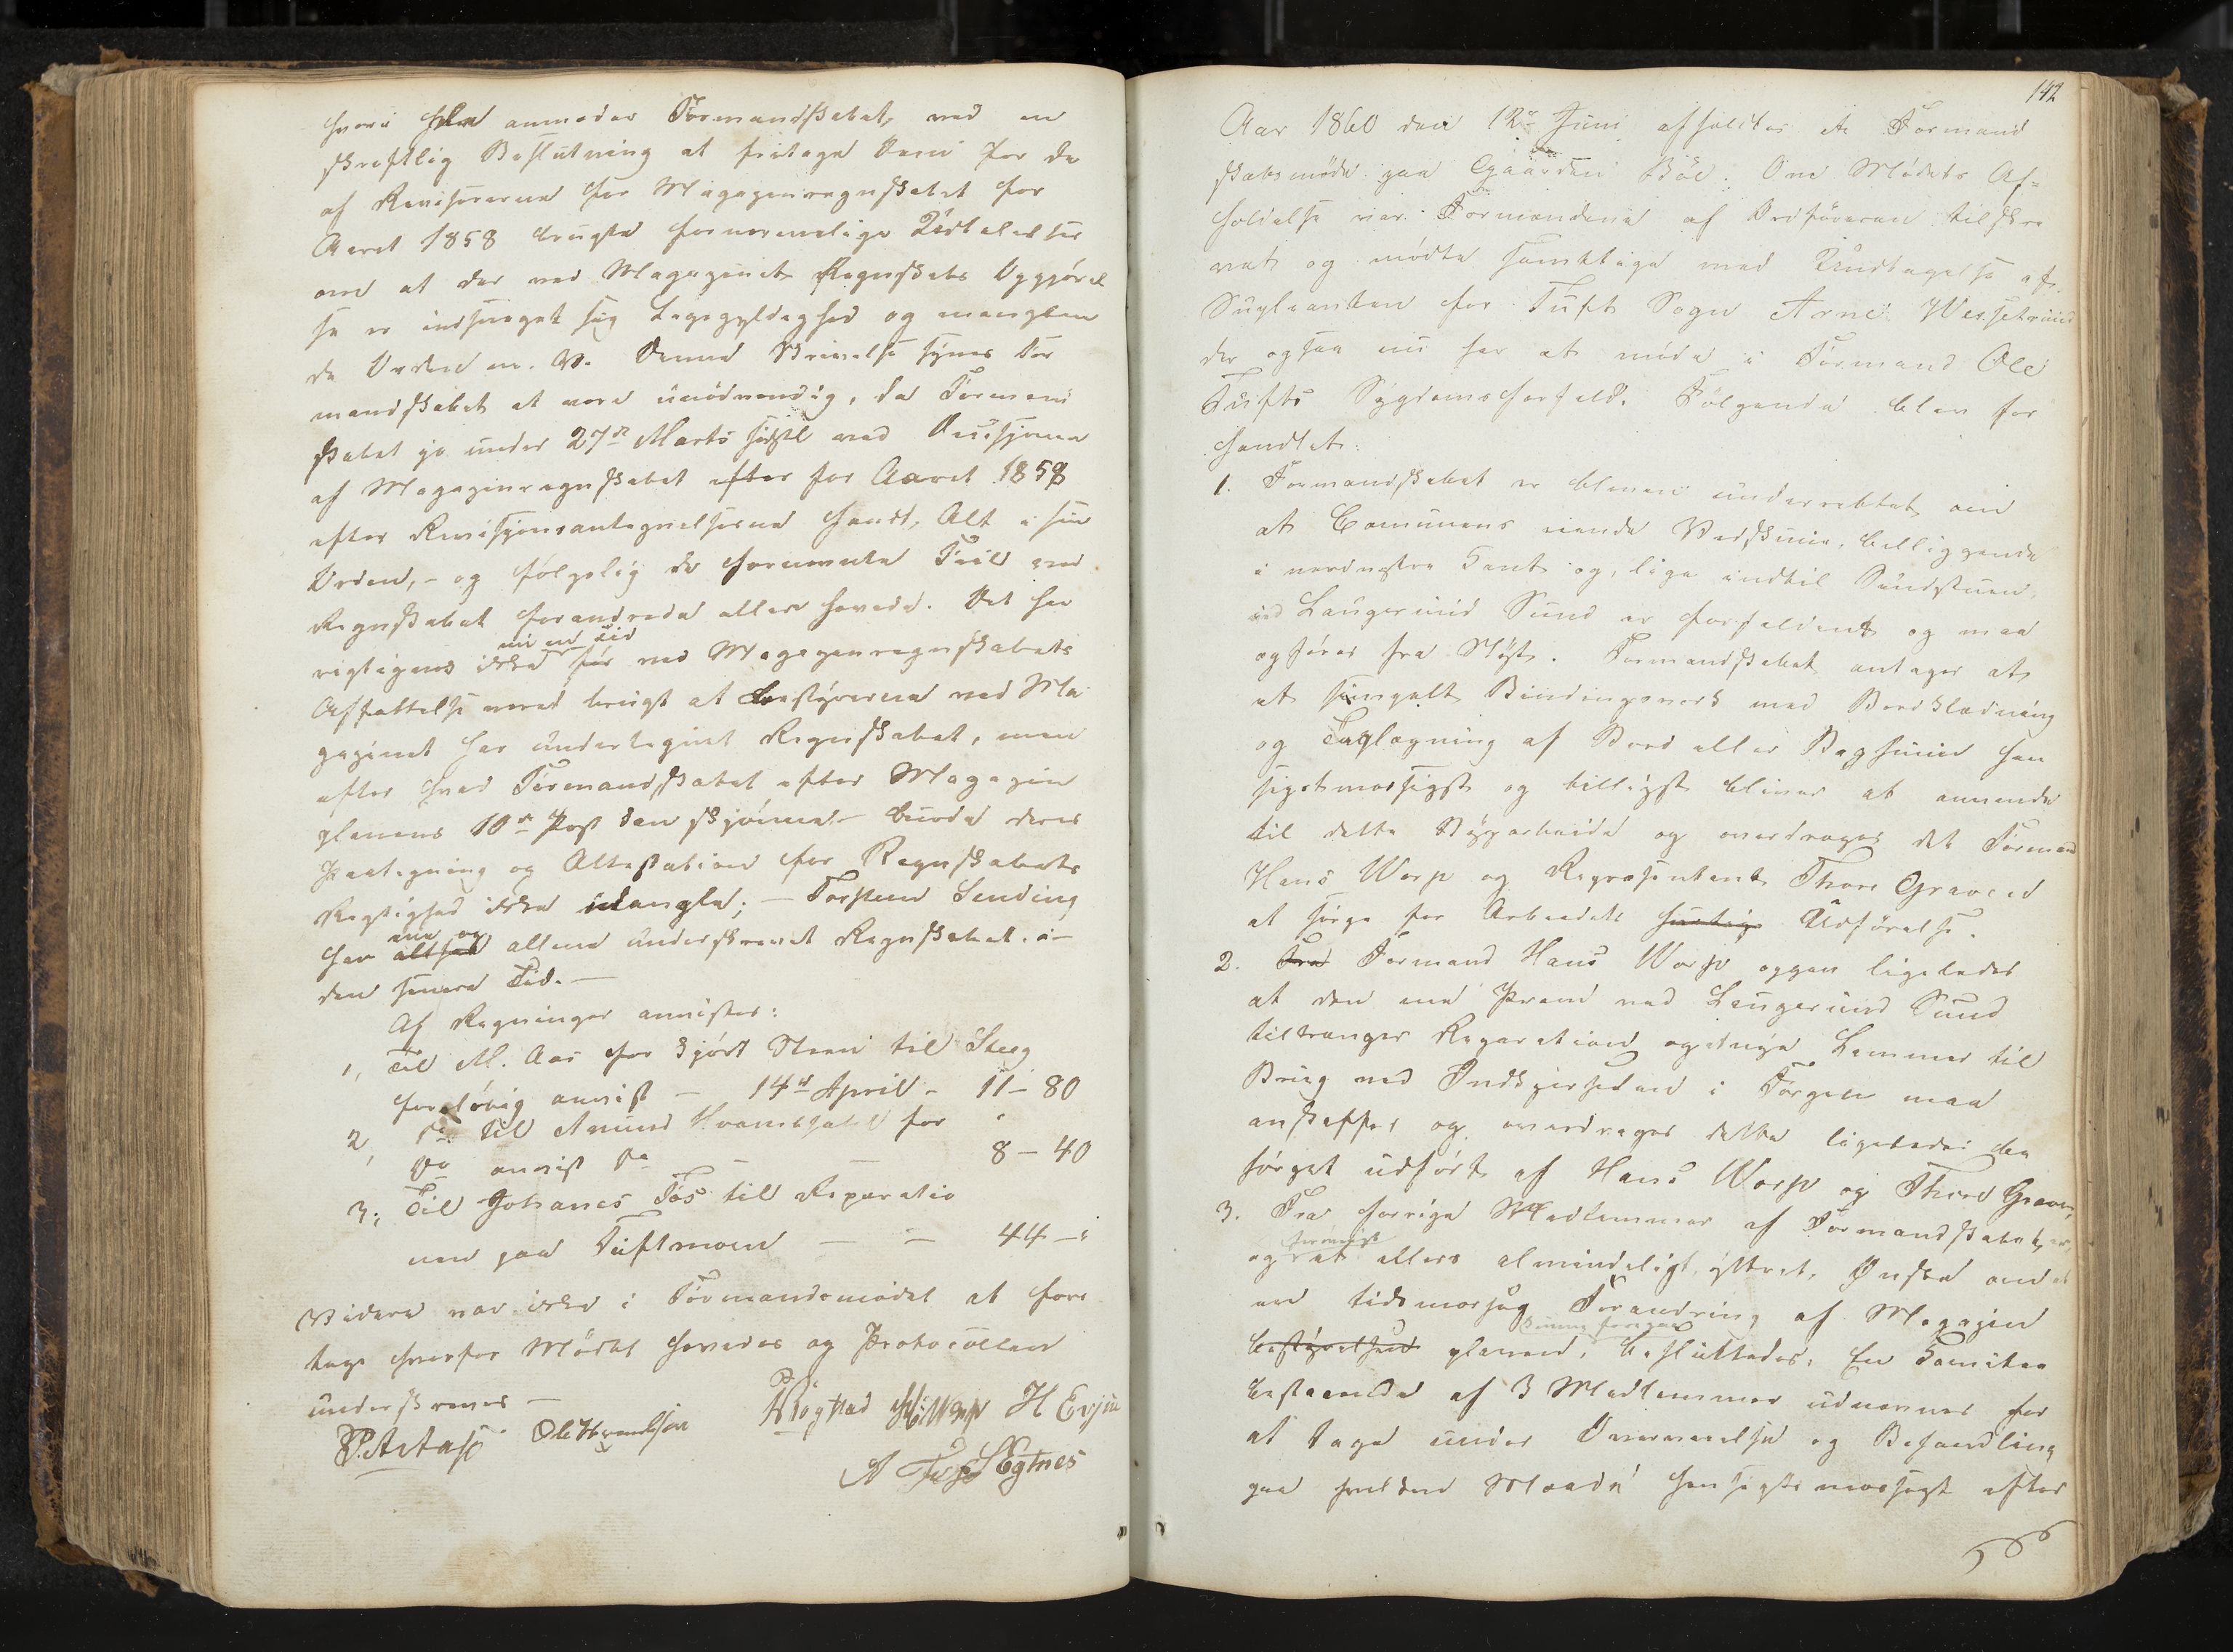 hvori han anmoder Formandskabet, ved en
skriftlig Beslutning at fritage ham for de
af Revisorerne for Magazinregnskabet for
Aaret 1858 brugte fornærmelige Udtalelser
om at der ved Magazinets Regnskabs Opgjørel
se er indsneget sig Ligegyldighed og manglen
de Orden m. v. Denne Skrivelse synes For
mandskabet at være unødvendig, da Formand
skabet jo under 27de Marts sidstl ved Decisionen
af Magazinregnskabet efter for Aaret 1858
efter Revisionsantegnelserne fandt Alt i sin
Orden, - og følgelig de formente Feil ved
Regnskabet forandrede eller hævede. Det har
nu en Tid
rigtignok ikke før ved Magazinregnskabets
Affattelse været brugt at Bestyrerne ved Ma
gazinet har undertegnet Regnskabet, men
efter hvad Formandskabet efter Magazin
planens 10de Post kan skjønne - burde deres
Paategning og Attestation for Regnskabets
Rigtighed ikke mangle; - Torsteen Sending
ene og
har altsaa allene underskrevet Regnskabet i
den senere Tid. -
Af Regninger anvistes:
1, Til M. Aas for kjørt Steen til Steeg
foreløbig anvist - 14de April - 11 - 80
2, Do Til Amund for
Do anvist Do - - 8 - 40
3, Til Johanes Fos til Reparatio
nen paa Tuftmoen - - 44 - "
Videre var ikke i Formandsmødet at fore
tage hvorfor Mødet hævedes og Protocollen
underskreves -
P. A. Aas Ole H Rogstad H Worp H Evju
A Fos S Egtnes
142
Aar 1860 den 12te Juni afholdtes et Formand
skabsmøde paa Gaarden Bøe. Om Mødets Af=
holdelse var Formændene af Ordføreren tilskre
vet og mødte samtlige med Undtagelse af
Supleanten for Tuft Sogn Arne
der ogsaa nu har at møde i Formand Ole
Tufts Sygdomsforfald. Følgende blev for
handlet:
1. Formandskabet er bleven underrettet om
at Comunens eiende Vedskuur, beliggende
i nordvestre Kant og lige indtil Sundstuen
ved Laugerud Sund er forfaldent og maa
opføres fra Nyt. Formandskabet antager at
et simpelt Bindingsværk med Bordklædning
og Taglægning af Bord eller Baghuun hen
sigtsmæssigst og billigst bliver at anvende
til dette Byggearbeide og overdrages det Formand
Hans Worp og Repræsentant Thore Graver
at sørge for Arbeidets hurtige Udførelse.
2. Fra Formand Hans Worp opgav ligeledes
at den ene Pram ved Laugerud Sund
tiltrænger Reparation og at nye Lemmer til
Brug ved Indkjørselen i Færgen maa
anskaffes og overdrages dette ligeledes be
sørget udført af Hans Worp og Thore Graver,
3. Fra forrige Medlemmer af Formandskabet,
fornemst
og et ellers almindeligt yttret, Ønske om at
en tidsmæssig Forandring af Magazin
kunne foregaae
bestyrelsen planen, besluttedes: En Komitee
bestaaende af 3 Medlemmer udnævnes for
at tage under Overveielse og Behandling
paa hvilken Maade hensigtsmæssigt efter